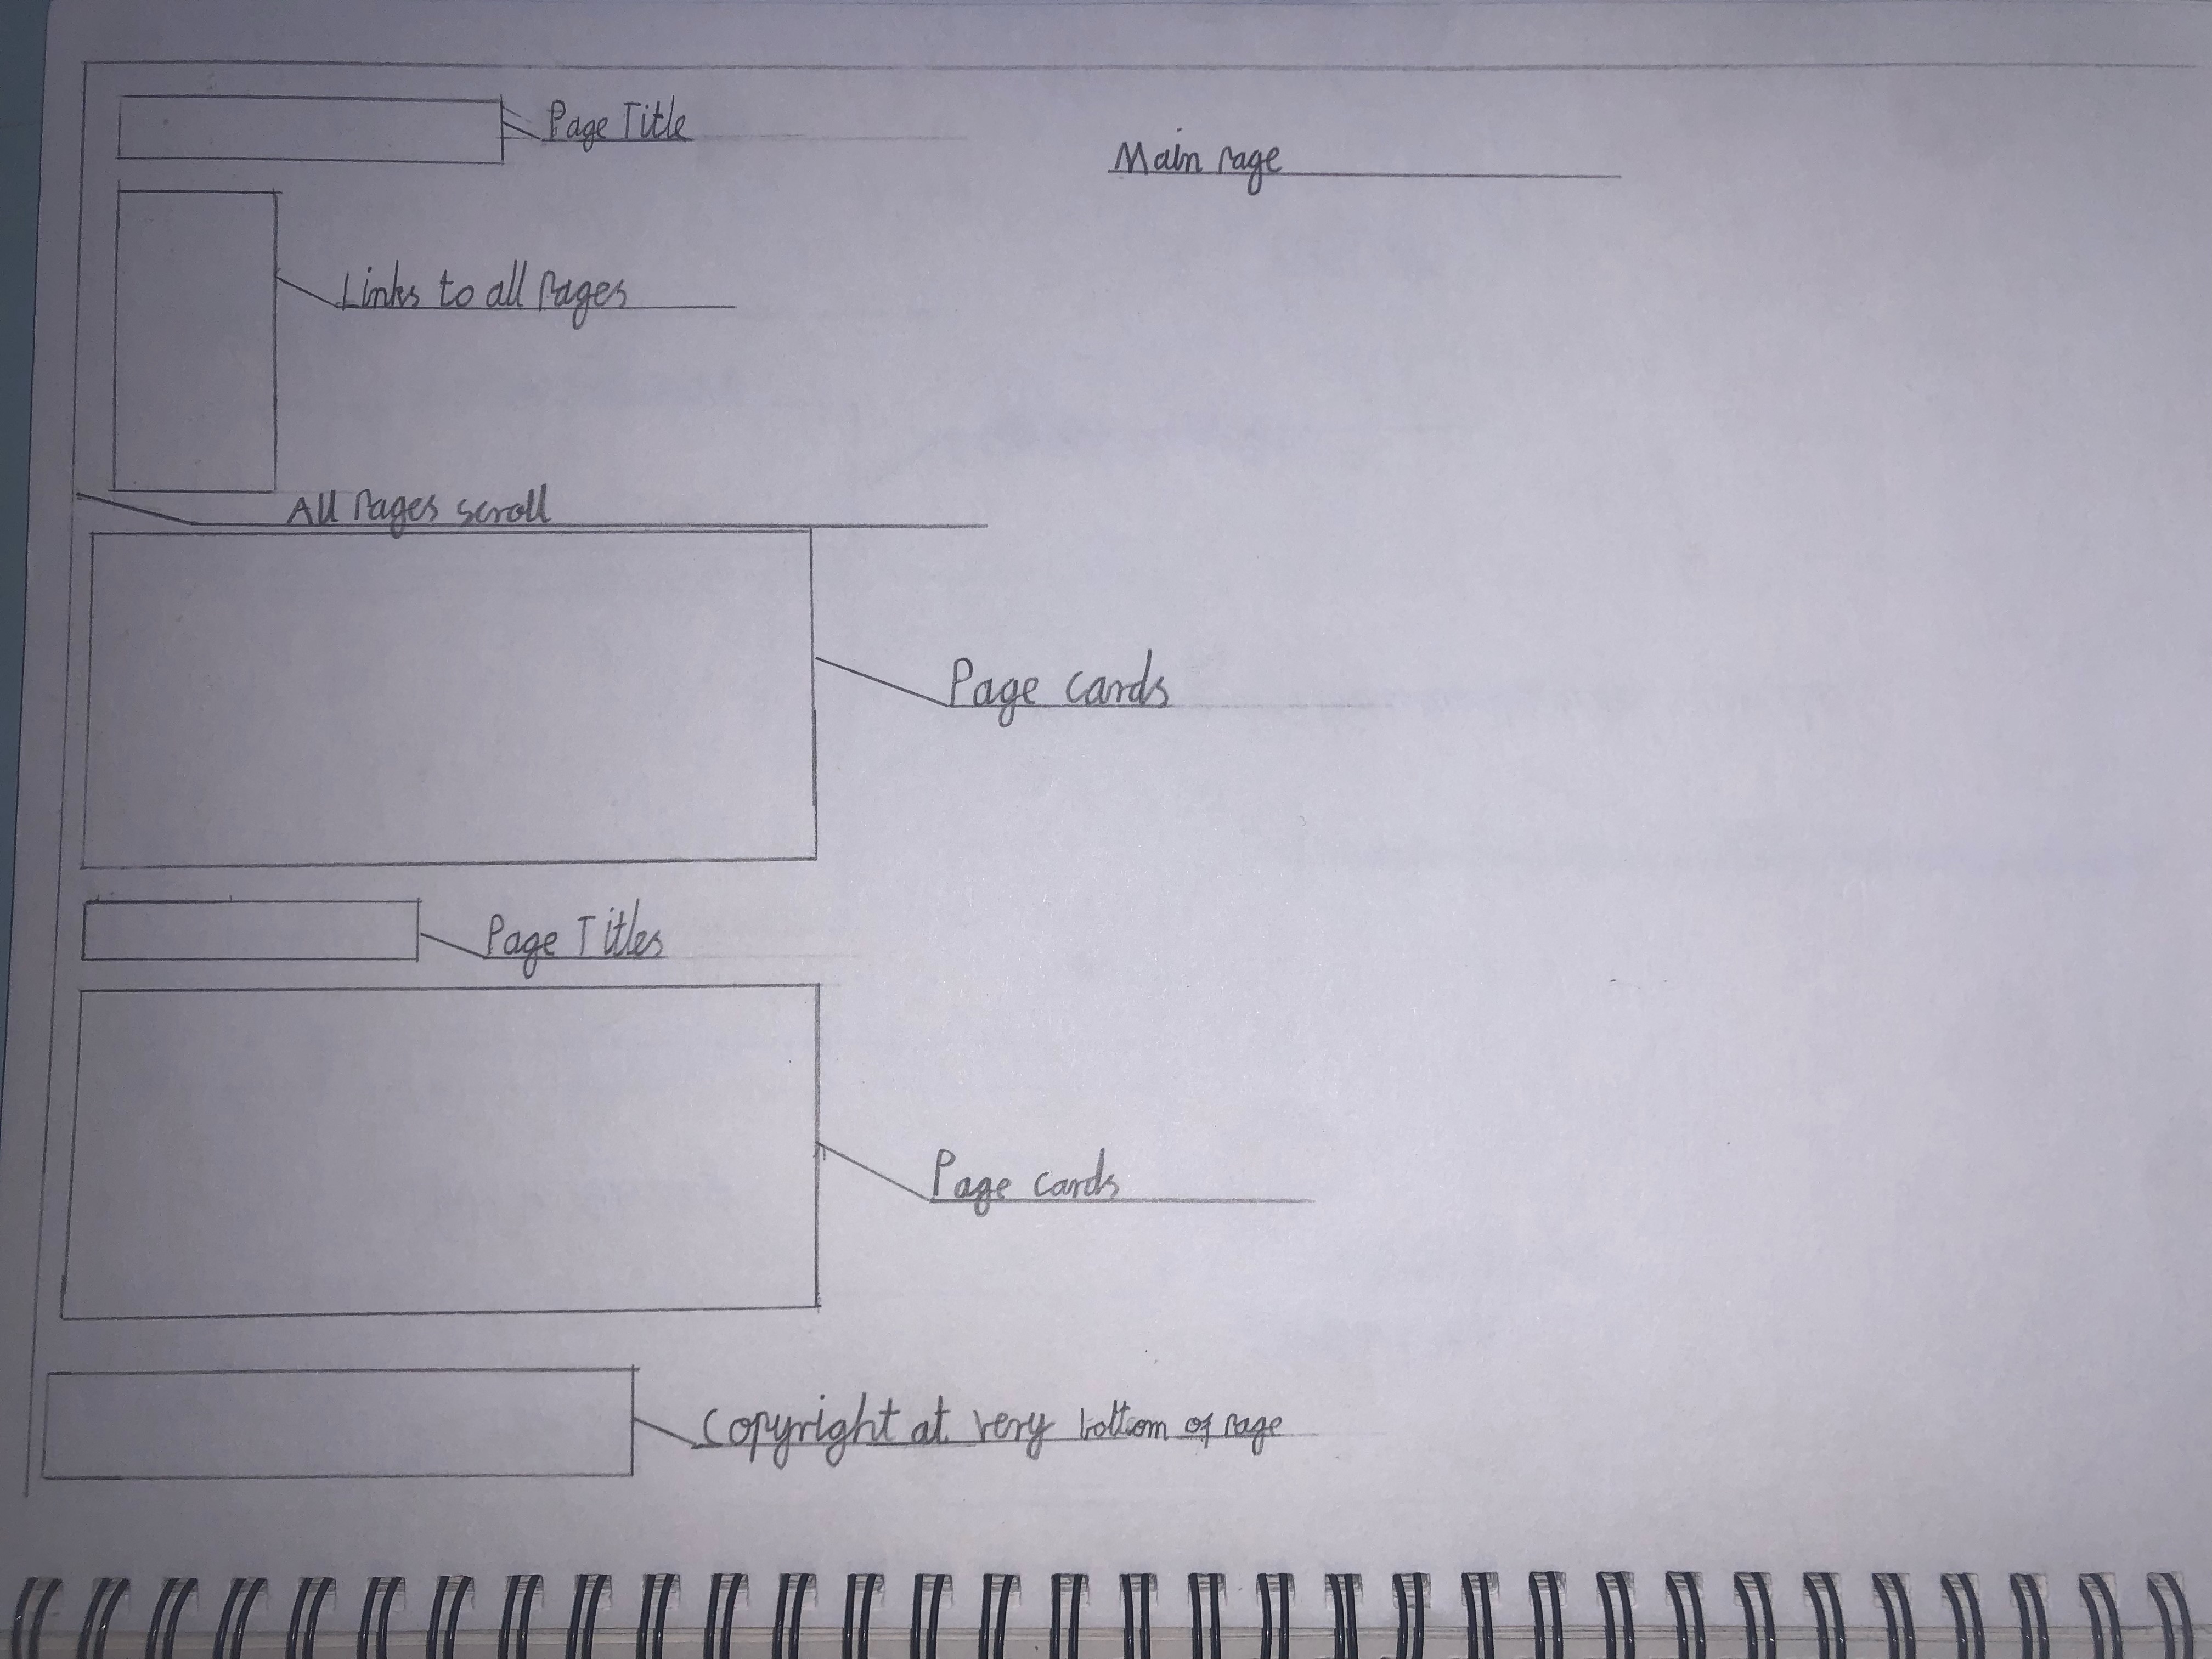 Main Page
Page Title
Links to all Pages
All Pages scroll
Page cards
Page Titles
Page cards
Copyright at very bottom of Page